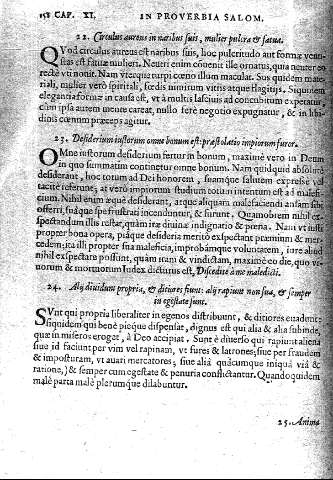 158 CAP. XI. IN PROVERBIA SALOM.
22. Circulus aureus in naribus suis, mulier pulcra & fatua.
QVod circulus aureus est naribus suis, hoc pulcritudo aut formæ venustas est fatuæ mulieri. Neuter enim conuenit ille ornatus, quia neuter eo
recte vti nouit. Nam vterque turpi cœno illum maculat. Sus quidem mate-
riali, mulier vero spiritali, fœdis nimirum vitiis atque flagitiis. Siquidem
elegantia formæ in causa est, vt à multis lasciuis ad concubitum expetatur
cùm ipsa autem mente careat, nullo ferè negotio expugnatur, & in libi-
dinis cœnum præceps agitur.
23. Desiderium iustorum omne bonum est: præstolatio impiorum furor.
OMne iustorum desiderium fertur in bonum, maximè vero in Deum
in quo summatim continetur omne bonum. Nam quidquid absolute
desiderant, hoc totum ad Dei honorem, suamque salutem expressè vel
tacitè referunt; at verò impiorum studium totum intentum est ad malefi-
cium. Nihil enim æquè desiderant, atque aliquam malefaciendi ansam sibi
offerri, suâque spe frustrati incenduntur, & furunt. Quamobrem nihil ex-
spectandum illis restat, quàm ira diuina indignatio & pœna. Nam vt iusti
propter bona opera, piáque desideria meritò exspectant præmium & mer-
cedem; ita illi propter sua maleficia, improbámque voluntatem, iure aliud
nihil exspectare possunt, quàm iram & vindictam, maximè eo die, quo vi-
uorum & mortuorum Iudex dicturus est, Discedite à me maledicti.
24. Alij diuidunt propria, & ditiores fiunt: alij rapiunt non sua, & semper
in egestate sunt.
SVnt qui propria liberaliter in egenos distribuunt, & ditiores euadent:
siquidem qui benè pieque dispensat, dignus est qui alia & alia subinde,
quæ in miseros eroget, à Deo accipiat. Sunt è diuerso qui rapiunt aliena
siue id faciunt per vim vel rapinam, vt fures & latrones; siue per fraudem
& imposturam, vt auari mercatores; siue aliâ quâcumque iniquâ viâ &
ratione,) & semper cum egestate & penuria conflictantur. Quandoquidem
malè parta malè plerumque dilabuntur.
25. Anima